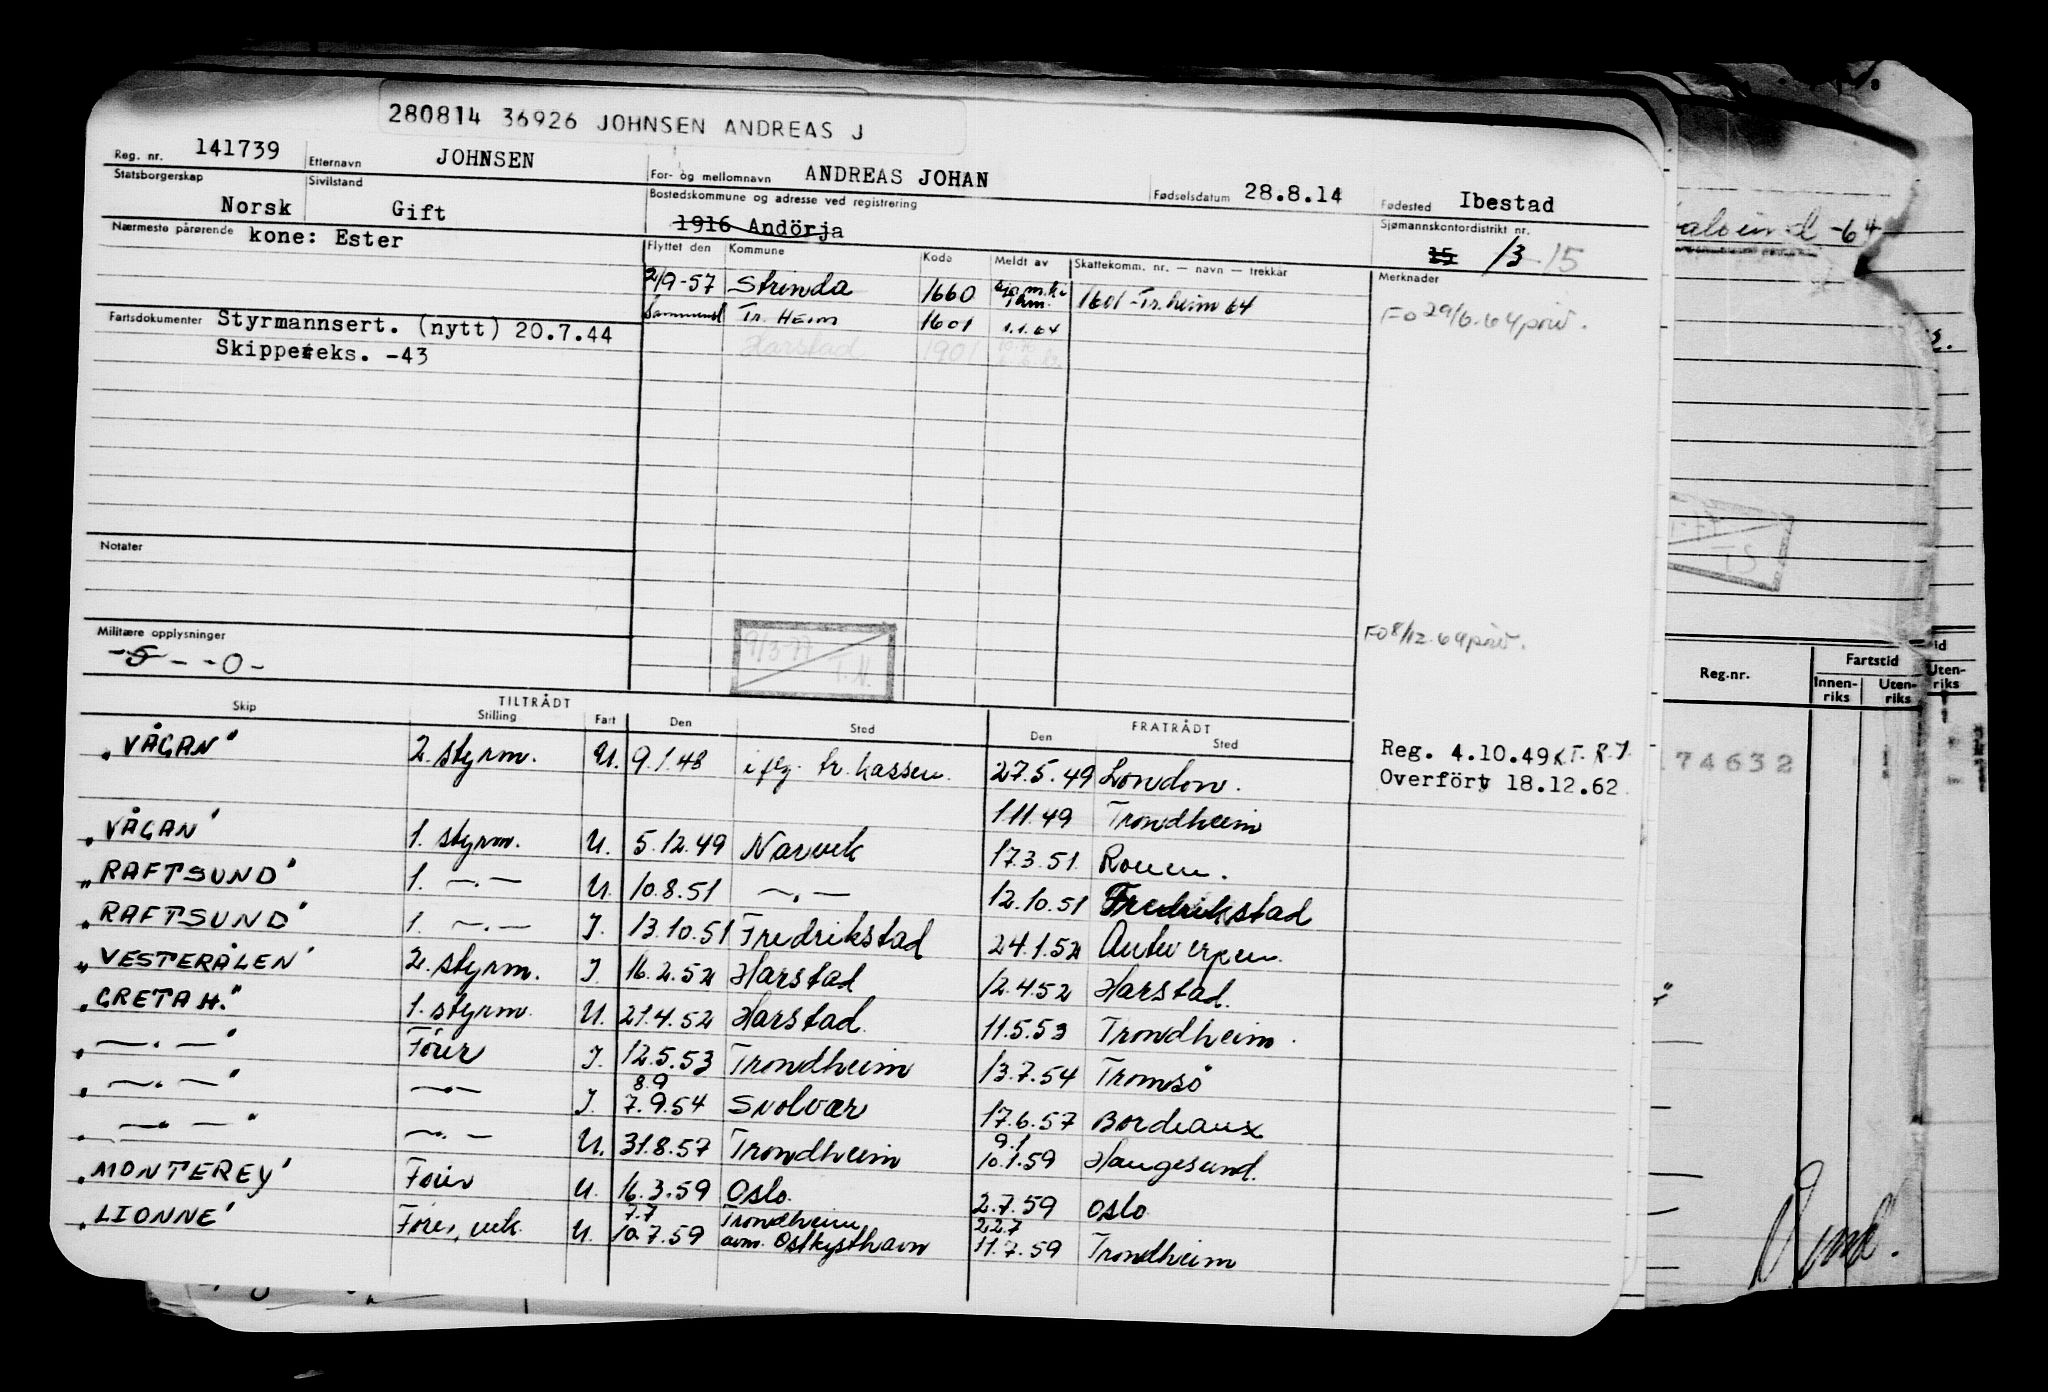 280814 36926 JOHNSEN ANDREAS J
Reg. nr. 141739 Etternavn JOHNSEN For- og mellomnavn ANDREAS JOHAN Fødselsdatum 28.8.14 Fødested Ibestad
Statsborgerskap Norsk Sivilstand Gift Bostedskommune og adresse ved registrering 1916 Andörja Sjømannskontordistrikt nr. 15 13 15
Nærmeste pårørende kone: Ester
Flyttet den Kommune Kode Meldt av Skattekomm. nr. — navn — trekkår Merknader
2/9-57 Strinda 1660 1601-Tr.heim 64
Tr. Heim 1601 1.1.64 FO 29/6.64 priv.
Harstad 1901
Fartsdokumenter Styrmannsert. (nytt) 20.7.44
Skippereks. -43
Notater
Militære opplysninger
-S- -0-
9/3-77
T.N.
FO 8/12.64 priv.
TILTRÅDT FRATRÅDT
Skip Stilling Fart Den Sted Den Sted
"VÅGAN" 2. styrm. U. 9.1.48 i flg. tr. kassen. 27.5.49 London. Reg. 4.10.49
1.11.49 Trondheim Overfört 18.12.62
"VÅGAN" 1. styrm. U. 5.12.49 Narvik 17.3.51 Rouen.
"RAFTSUND" 1. —.— U. 10.8.51 —.— 12.10.51 Fredrikstad
"RAFTSUND" 1. —.— I. 13.10.51 Fredrikstad 24.1.52 Antwerpen
"VESTERÅLEN" 2. styrm. I 16.2.52 Harstad 12.4.52 Harstad.
"GRETA H." 1. styrm. U. 21.4.52 Harstad. 11.5.53 Trondheim.
"—.—" Förer I. 12.5.53 Trondheim 13.7.54 Tromsö
"—.—" —.— I. 8.9 7.9.54 Svolvær 17.6.57 Bordeaux
"—.—" —.— U. 31.8.57 Trondheim 9.1 10.1.59 Haugesund.
"MONTEREY" Förer U. 16.3.59 Oslo. 2.7.59 Oslo
"LIONNE" Förer, vik. U. 7.7 10.7.59 Trondheim anm. Ostkysthavn 22.7 11.7.59 Trondheim
-64
Reg.nr. Fartstid
Innen-riks Uten-riks
Uten-riks
74632